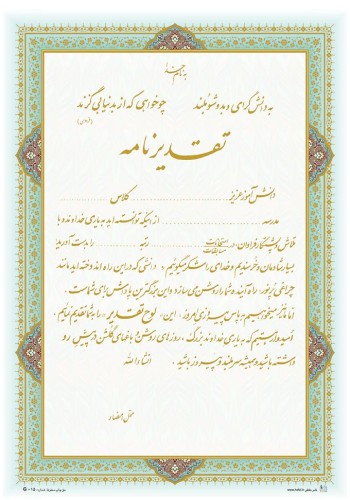 به نام خدا
به دانش گرای و بدو شو بلند چو خواهی که از بد نیابی گزند
(فردوسی)
تقدیرنامه
دانش آموز عزیز کلاس
مدرسه از اینکه توانسته اید به یاری خداوند و با
تلاش و پشتکار فراوان، در امتحانات مسابقات رتبه را بدست آورید
بسیار شادمان و خرسندیم و خدای را شکر می‌گوییم، دانشی که در این راه اندوخته اید مانند
چراغی پرنور، راه آینده شما را روشن می سازد و این بزرگترین پاداش برای شماست.
اما ما نیز می‌خواهیم به پاس پیروزی امروز، این، لوح تقدیر، را به شما تقدیم نمائیم.
امیدواریم که به یاری خداوند بزرگ، روزهای روشن و باغهای گلشن در پیش رو
داشته باشید و همیشه سربلند و پیروز باشید. انشاءالله
محل امضاء: